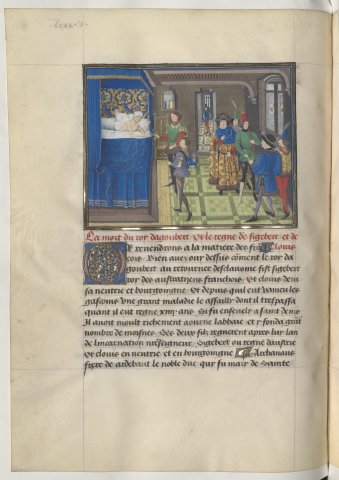 La mort du roy dagoubert. Et le regne de sigebert et de
Or revendrons a la matiere des fran Clouis
cois. Bien aues ouy dessus coment le roy da
goubert au retourner desclauonie fist sigebert
roy des austrasiens franchois. Et clouis deuî
sa neutrie et bourgongne. Et depuis quil eut vaincu les
gascoins Une grant maladie le assailly dont il trespassa
quant il eut regne xiiij. ans. Si fu enseuely a saint denis
Il auoit moult richement aourne labbaie et y fonda grãt
nombre de moisnes. Ses deux filz regnerent apres lui lan
de lincarnation nreseigneur. Sigebert ou regne daustrie
Et clouis en neutrie et en bourgoingne Archanaus
frere de aidebaut le noble duc qui fu mary de sainte